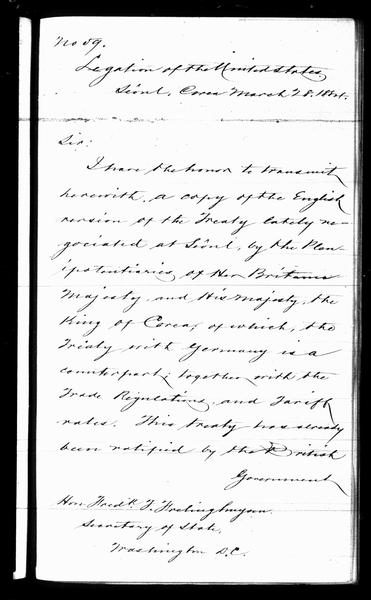 No 59.
Legation of the United States,
Seóul, Corea March 28. 1884.
Sir:
I have the honor to transmit
herewith, a copy of the English
version of the Treaty lately ne-
gociated at Seóul, by the Plen-
ipotentiaries, of Her Britanic
Majesty, and His Majesty, the
King of Corea; of which, the
Treaty with Germany is a
counterpart; together with the
Trade Regulations, and Tariff
rates. This treaty has already
been ratified by the British
Government
Hon Fredk. T. Frelinghuysen.
Secretary of State,
Washington D.C.